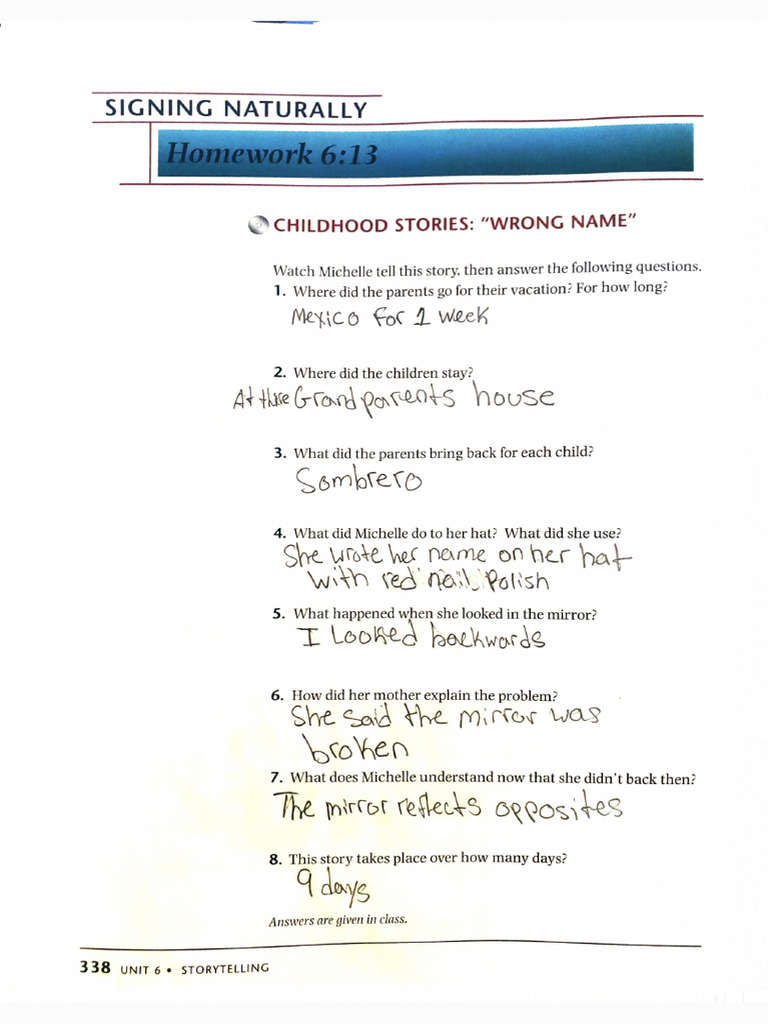 SIGNING NATURALLY
Homework 6:13
CHILDHOOD STORIES: “WRONG NAME”
Watch Michelle tell this story, then answer the following questions.
1. Where did the parents go for their vacation? For how long?
Mexico for 1 week
2. Where did the children stay?
At there Grandparents house
3. What did the parents bring back for each child?
Sombrero
4. What did Michelle do to her hat? What did she use?
She wrote her name on her hat
with red nail Polish
5. What happened when she looked in the mirror?
I Looked backwards
6. How did her mother explain the problem?
She said the mirror was
broken
7. What does Michelle understand now that she didn't back then?
The mirror reflects opposites
8. This story takes place over how many days?
9 days
Answers are given in class.
338 UNIT 6 • STORYTELLING